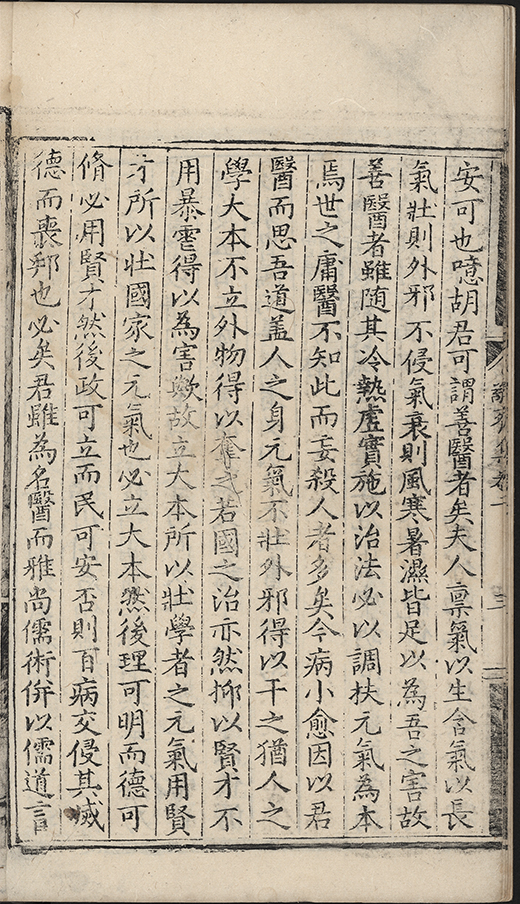 安可也噫胡君可謂善醫者矣夫人禀氣以生含氣以長
氣壯則外邪不侵氣衰則風寒暑濕皆足以為吾之害故
善醫者雖随其冷熱虛實施以治法必以調扶元氣為本
焉世之庸醫不知此而妄殺人者多矣今病小愈因以君
醫而思吾道盖人之身元氣不壯外邪得以干之猶人之
學大本不立外物得以奪之若國之治亦然抑以賢才不
用暴雪得以為害歟故立大本所以壯學者之元氣用賢
才所以壯國家之元氣也必立大本然後理可明而德可
脩必用賢才然後政可立而民可安否則百病交侵其滅
德而喪邦也必矣君雖為名醫而雅尚儒術併以儒道言
集卷一
三